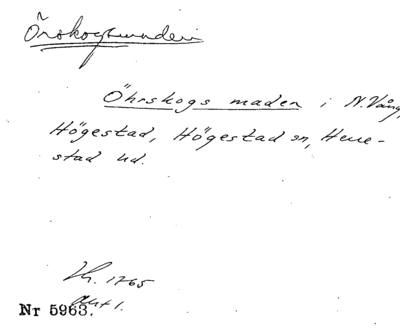 Örskogsmaden
Öhrskogs maden i N. Vång,
Högestad, Högestad sn, Herre-
stad hd.
Lh. 1765
Akt 1.
Nr 5963.